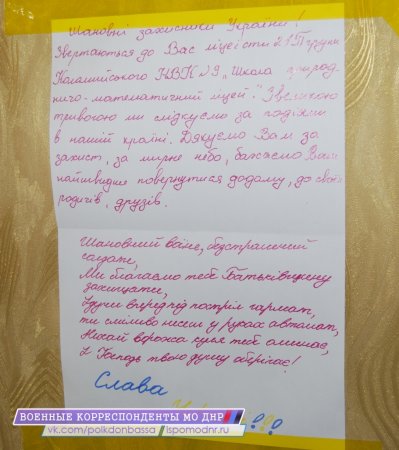 Шановні захисники України!
Звертаються до Вас ліцеїсти 21П групи
Коломийського НВК №9 "Школа природ-
ничо-математичний ліцей". З великою
тривогою ми слідкуємо за подіями
в нашій країні. Дякуємо Вам за
захист, за мирне небо, бажаємо Вам
найшвидше повернутися додому, до своїх
родичів, друзів.
Шановний воїне, безстрашний
солдате,
Ми благаємо тебе Батьківщину
захищати,
Ідучи вперед під постріл гармат,
ти сміливо несеш у руках автомат,
Нехай ворожа куля тебе оминає,
І Господь твою душу оберігає!
Слава
ВОЕННЫЕ КОРРЕСПОНДЕНТЫ МО ДНР
vk.com/polkdonbassa / ispomodnr.ru